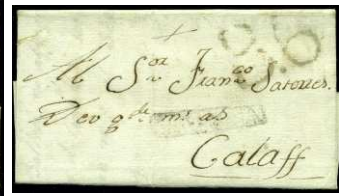 Al Sor Franco Satorres.
Deo gde ms as
Calaff